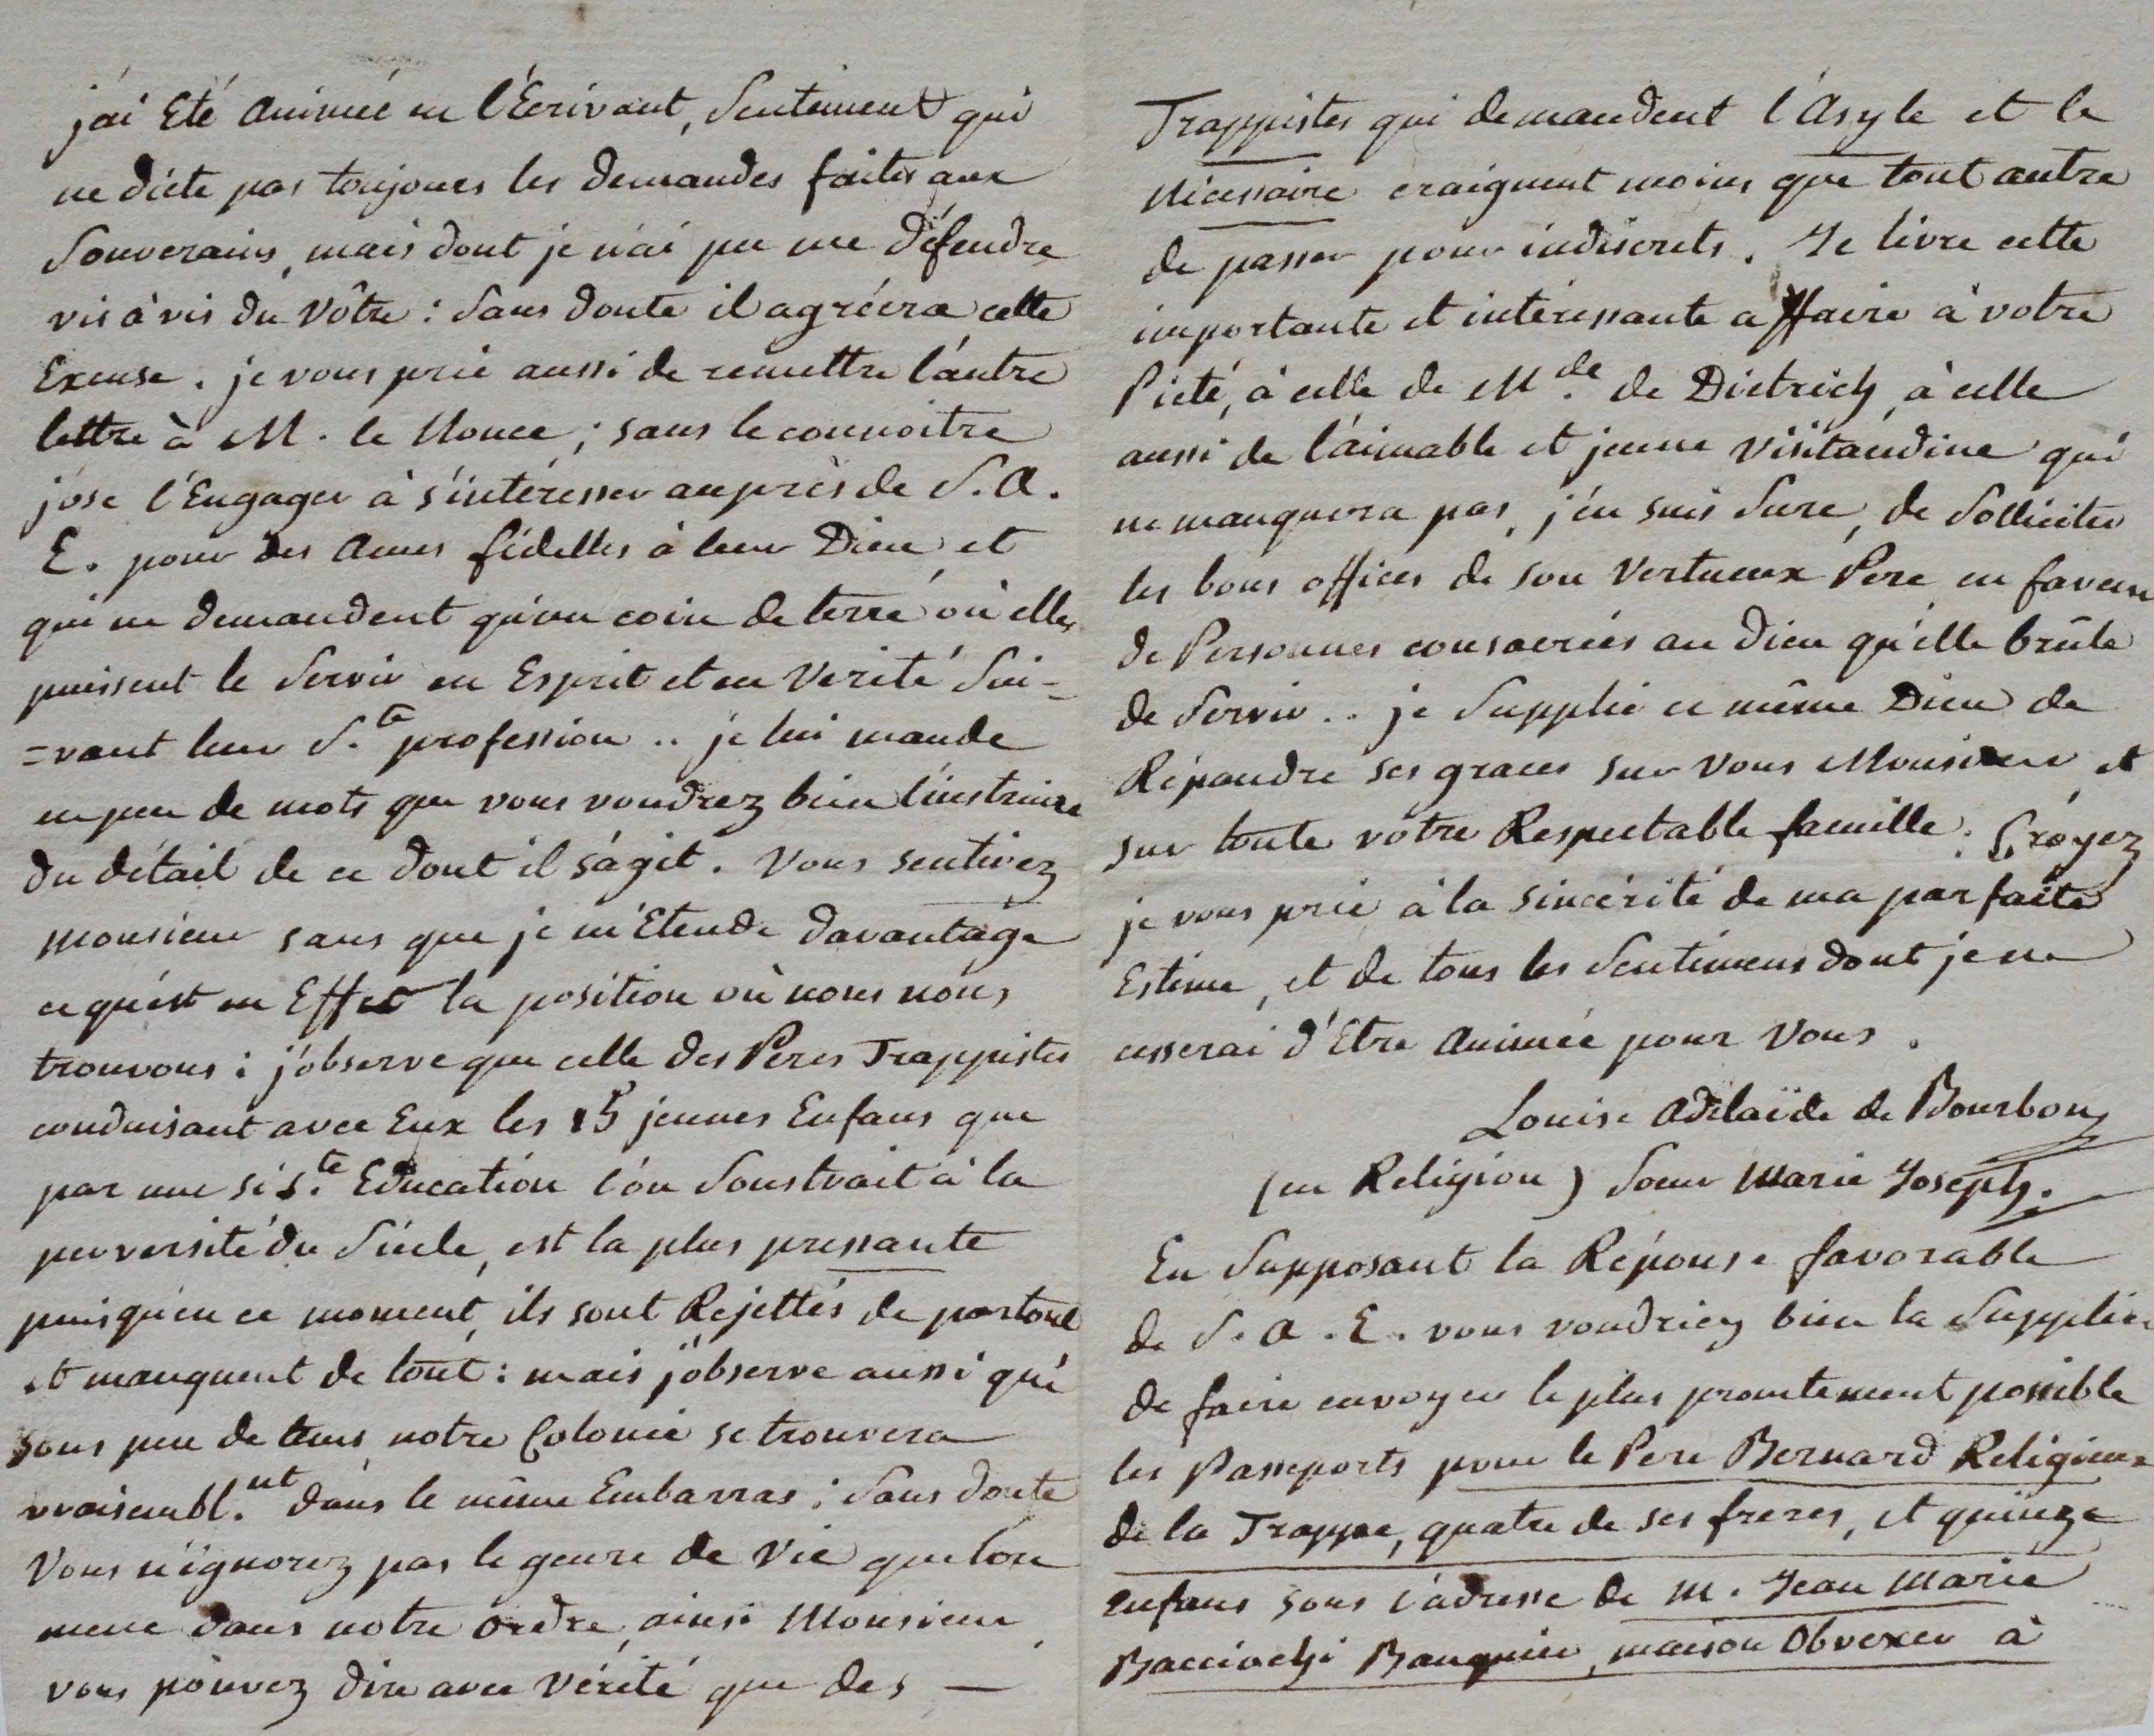 j'ai Eté Animée en l'Ecrivant, Sentiment qui
ne dicte pas toujours les demandes faites aux
Souverains, mais dont je n'ai pu me défendre
vis à vis du Vôtre : Sans doute il agréera cette
Excuse. je vous prie aussi de remettre l'autre
lettre à M. le Nonce ; sans le connoitre
j'ose l'Engager à s'intéresser auprès de S. A.
E. pour des Ames fidelles à leur Dieu, et
qui ne demandent qu'un coin de terre où elles
puissent le Servir en Esprit et en Verité Sui=
=vant leur S.te profession .. je lui mande
en peu de mots que vous voudrez bien l'instruire
du détail de ce dont il s'agit. Vous sentirez
Monsieur sans que je m'Etende davantage
ce qu'est en Effet la position où nous nous
trouvons : j'observe que celle des Peres Trappistes
conduisant avec Eux les 15 jeunes Enfans que
par une si S.te Education l'on Soustrait à la
perversité du Siècle, est la plus pressante
puisqu'en ce moment, ils sont Rejettés de partout
et manquent de tout : mais j'observe aussi qué
sous peu de tems notre Colonie se trouvera
vraisembl.nt dans le même Embarras ; Sans doute
Vous n'ignorez pas le genre de Vie que l'on
mene dans notre ordre, ainsi Monsieur,
vous pouvez dire avec Vérité que des —
Trappistes qui demandent l'Asyle et le
Nécessaire craignent moins que tout autre
de passer pour indiscrets. Je livre cette
importante et intéressante affaire à votre
Pieté, à celle de M.de de Dietrich, à celle
aussi de l'aimable et jeune Visitandine qui
ne manquera pas, j'en suis Sure, de Solliciter
les bons offices de son Vertueux Pere en faveur
de Personnes consacrées au Dieu qu'elle brûle
de Servir .. je Supplie ce même Dieu de
Répandre ses graces sur Vous Monsieur et
sur toute votre Respectable famille. Croyez
je vous prie à la Sincérité de ma parfaite
Estime, et de tous les Sentimens dont je ne
cesserai d'Etre Animée pour Vous.
Louise Adélaïde de Bourbon
(en Religion) Soeur Marie Joseph.
En Supposant la Réponse favorable
de S. A. E. vous voudriez bien la Supplier
de faire envoyer le plus promtement possible
les Passeports pour le Pere Bernard Religieux
de la Trappe, quatre de ses freres, et quinze
enfans sous l'adresse de M. Jean Marie
Bacciochi Banquier, maison Obvexer à